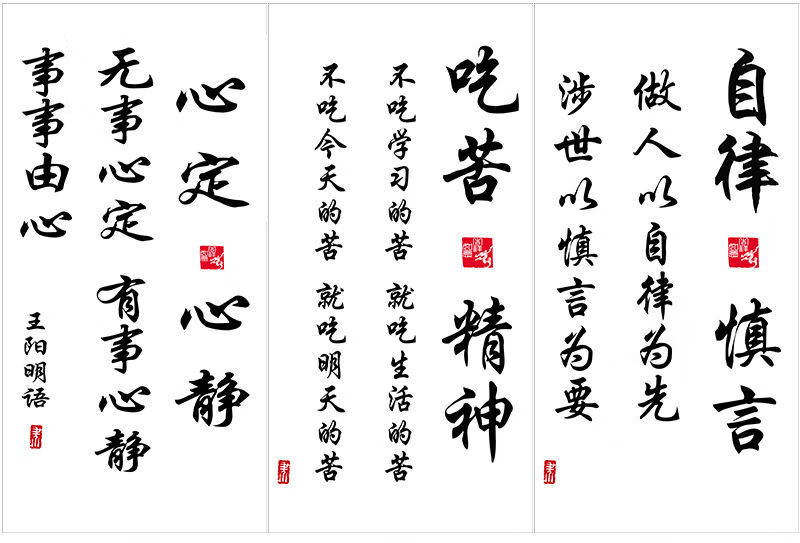 自律 慎言
做人以自律为先
涉世以慎言为要
吃苦 精神
不吃学习的苦 就吃生活的苦
不吃今天的苦 就吃明天的苦
心定 心静
无事心定 有事心静
事事由心
王阳明语